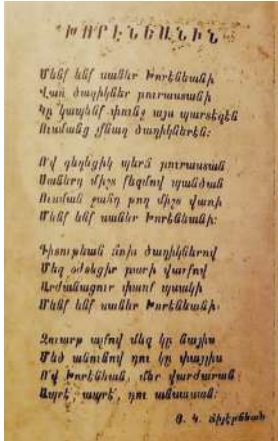 ԽՈՐԷՆԵԱՆԻՆ
Մենք ենք սաներ Խորէնեանի
Վառ ծաղիկներ բուրաստանի
Կը կապենք փունջ այս պարտէզէն
Ուսմանց ծաղիկներէն։
Ո՛վ գեղեցիկ պերճ բուրաստան
Սաներդ միշտ պանծան
Ուսման ջահդ թող միշտ վառի
Մենք ենք սաներ Խորէնեանի։
Գիտութեան նուրբ ծաղիկներով
Մեզ օժտեցիր բարի վարքով
Արժանացուր փառքի պսակի
Մենք ենք սաներ Խորէնեանի.
Զուարթ այքով մեզ կը նայիս
Մեծ անունով դու կը փայլիս
Ո՛վ Խորէնեան, մեր վարժարան
Ապրէ՛ ապրէ՛, դու անսասան։
Յ. Կ.